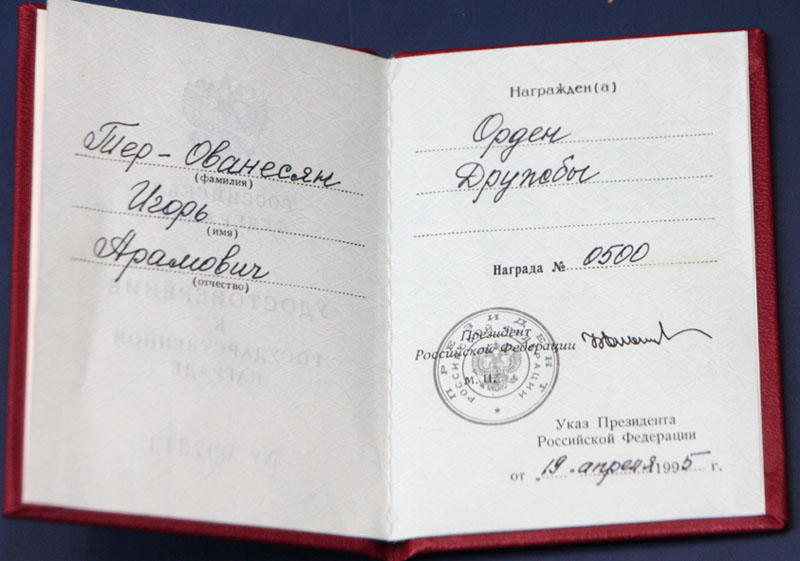 Тер-Ованесян
(фамилия)
Игорь
(имя)
Арамович
(отчество)
Награжден(а)
Орден
Дружбы
Награда № 0500
Президент
Российской Федерации
М. П.
ПРЕЗИДЕНТ
РОССИЙСКОЙ ФЕДЕРАЦИИ
Указ Президента
Российской Федерации
от „19" апреля 1995 г.
УДОСТОВЕРЕНИЕ
К
ГОСУДАРСТВЕННОЙ
НАГРАДЕ